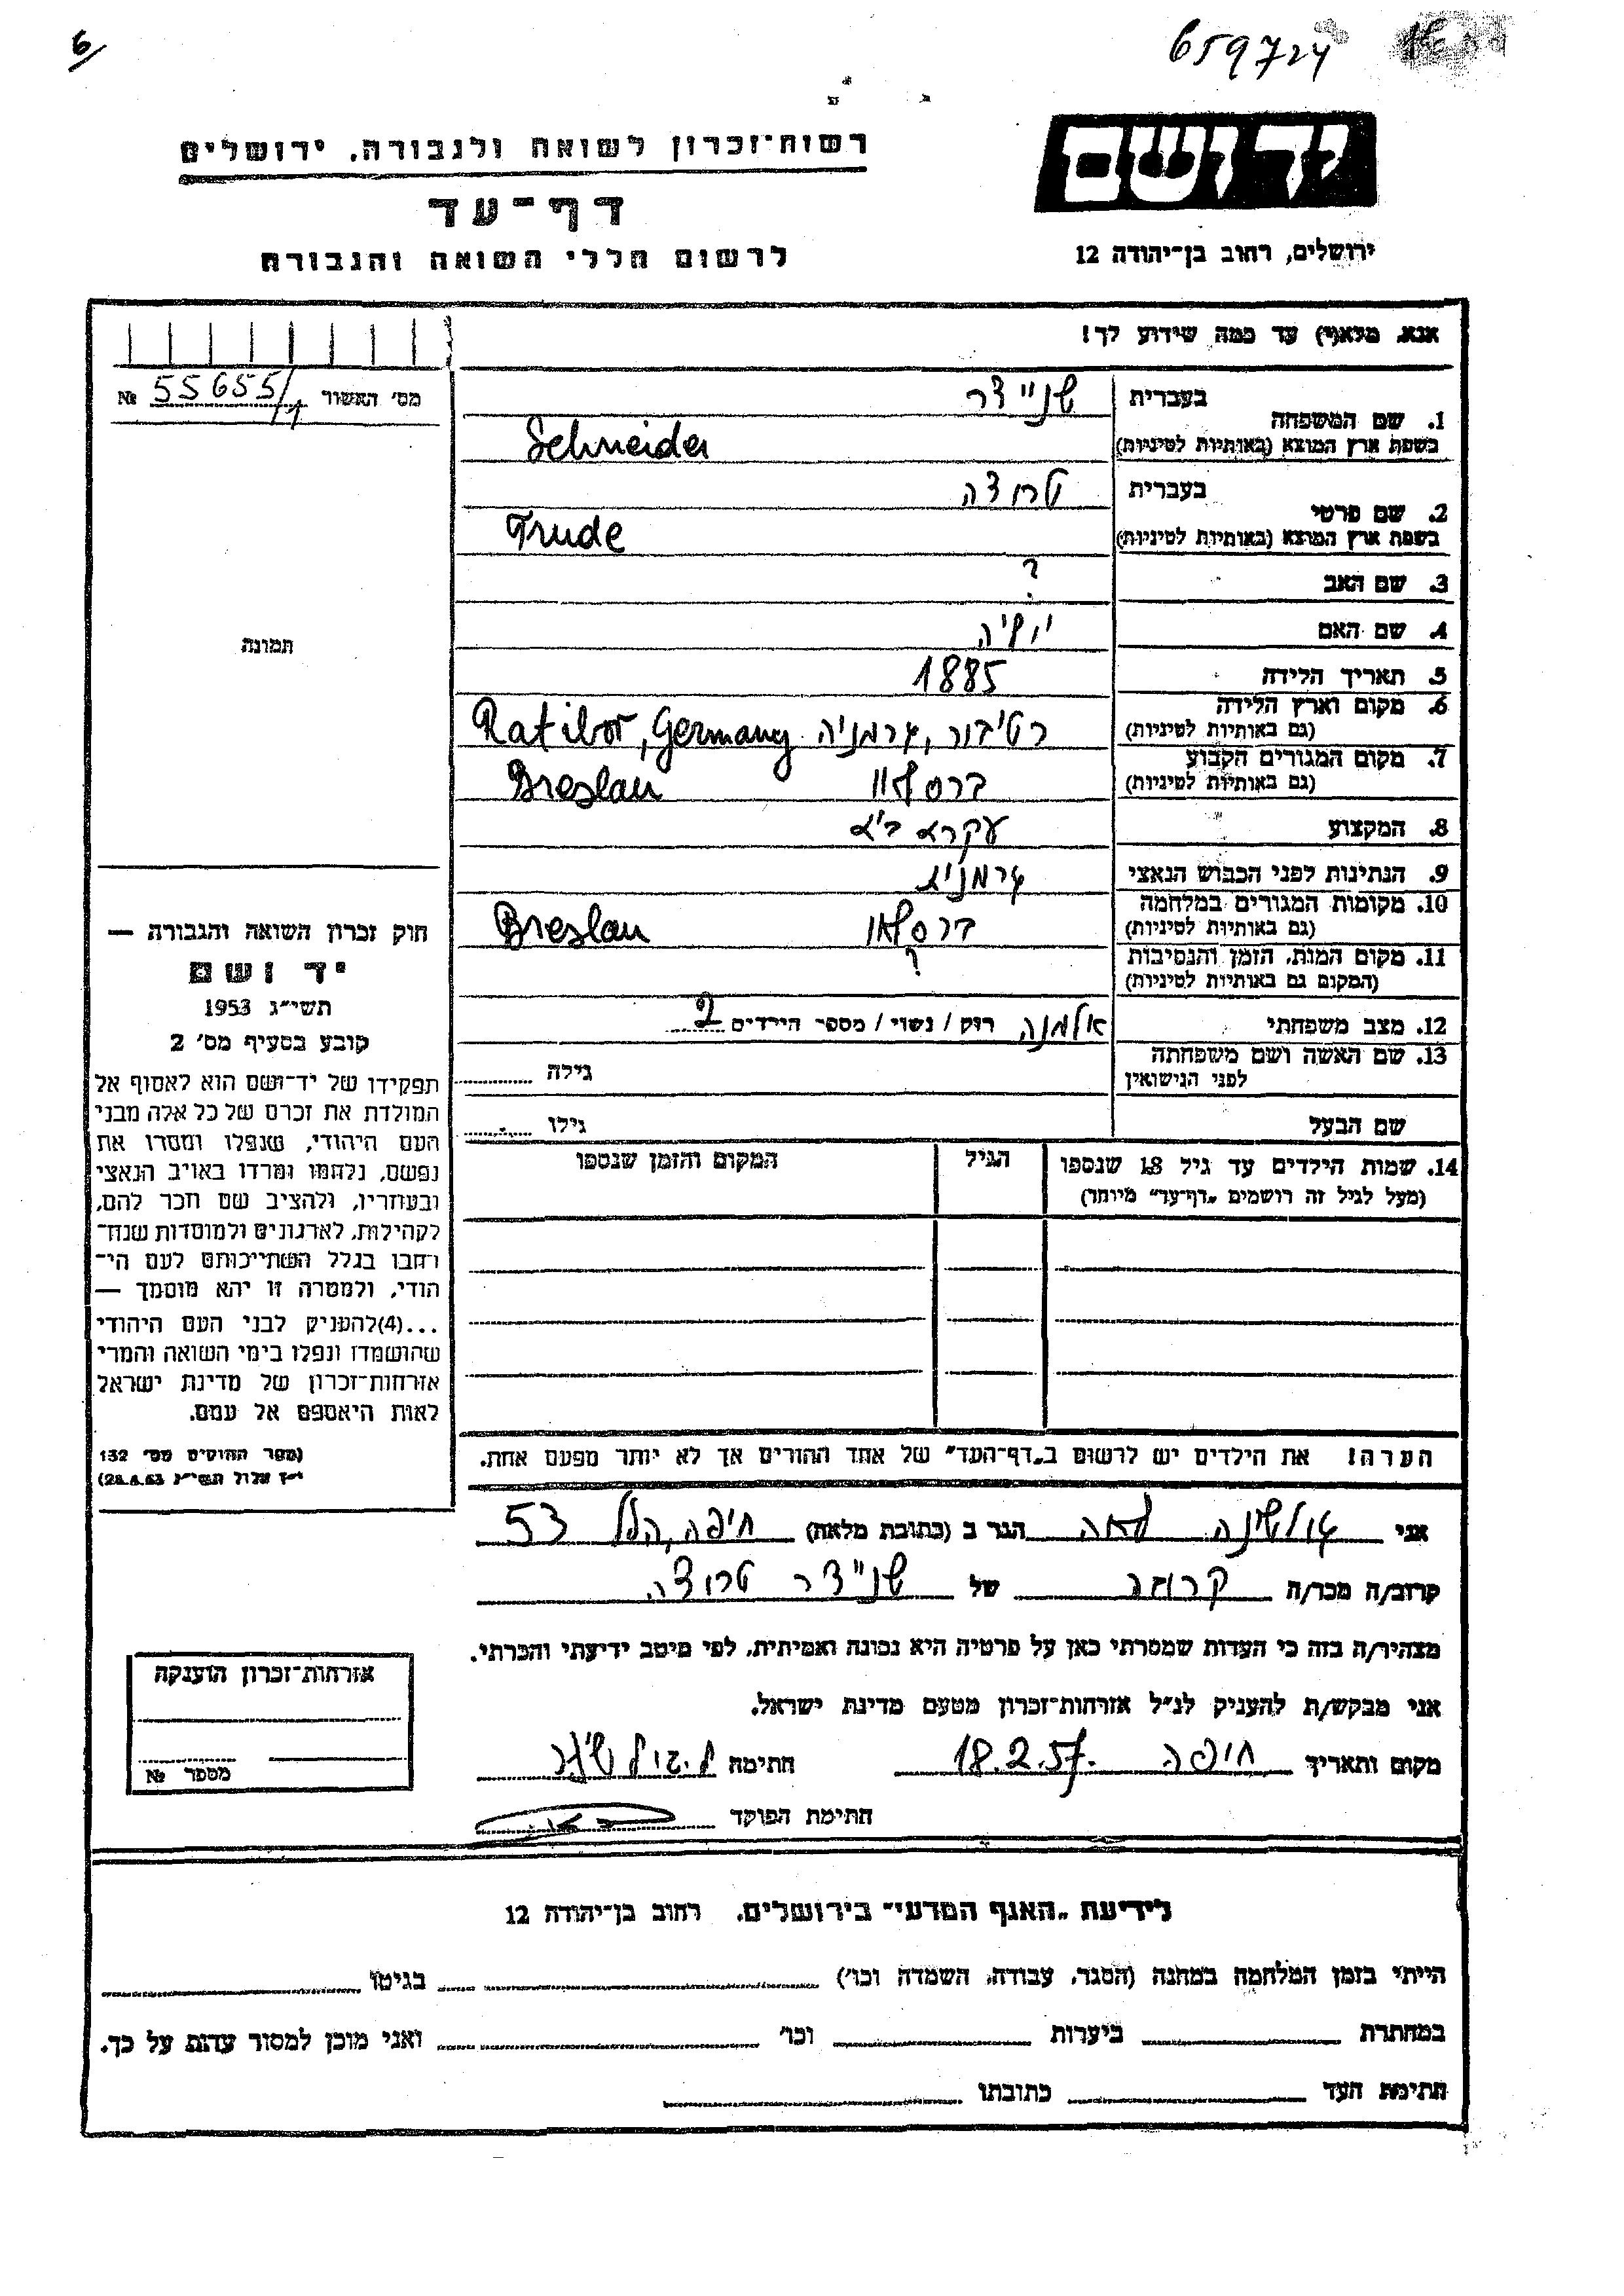 6/
659724
רשות־זכרון לשואה ולגבורה, ירושלים
יד ושם
דף־עד
לרשום חללי השואה והגבורה
ירושלים, רחוב בן־יהודה 12
אנא, מלא(י) עד כמה שידוע לך!
מס' האשור 55655/1 №
1. שם המשפחה
בעברית שניידר
בשפת ארץ המוצא (באותיות לטיניות) Schneider
2. שם פרטי
בעברית טרודה
בשפת ארץ המוצא (באותיות לטיניות) Trude
3. שם האב ?
4. שם האם יוליה
5. תאריך הלידה 1885
6. מקום וארץ הלידה
(גם באותיות לטיניות) רטיבור, גרמניה Ratibor, Germany
7. מקום המגורים הקבוע
(גם באותיות לטיניות) ברסלאו Breslau
8. המקצוע עקרת בית
9. הנתינות לפני הכבוש הנאצי גרמנית
10. מקומות המגורים במלחמה
(גם באותיות לטיניות) ברסלאו Breslau
11. מקום המות, הזמן והנסיבות ?
(המקום גם באותיות לטיניות)
12. מצב משפחתי אלמנה רוק / נשוי / מספר הילדים 2
13. שם האשה ושם משפחתה
לפני הנישואין
גילה
שם הבעל גילו
14. שמות הילדים עד גיל 18 שנספו
(מעל לגיל זה רושמים „דף־עד" מיוחד)
הגיל
המקום והזמן שנספו
הערה! את הילדים יש לרשום ב„דף־העד" של אחד ההורים אך לא יותר מפעם אחת.
תמונה
חוק זכרון השואה והגבורה —
יד ושם
תשי״ג 1953
קובע בסעיף מס' 2
תפקידו של יד־ושם הוא לאסוף אל
המולדת את זכרם של כל אלה מבני
העם היהודי, שנפלו ומסרו את
נפשם, נלחמו ומרדו באויב הנאצי
ובעוזריו, ולהציב שם וזכר להם,
לקהילות, לארגונים ולמוסדות שנח־
רבו בגלל השתייכותם לעם הי־
הודי, ולמטרה זו יהא מוסמך —
...(4)להעניק לבני העם היהודי
שהושמדו ונפלו בימי השואה והמרי
אזרחות־זכרון של מדינת ישראל
לאות היאספם אל עמם.
(ספר החוקים מס' 132
י״ז אלול תשי״ג 28.8.53)
אני לאה הגר ב (כתובת מלאה) חיפה, הלל 53
קרוב/ה מכר/ה קרובה של שניידר טרודה
מצהיר/ה בזה כי העדות שמסרתי כאן על פרטיה היא נכונה ואמיתית, לפי מיטב ידיעתי והכרתי.
אני מבקש/ת להעניק לנ״ל אזרחות־זכרון מטעם מדינת ישראל.
מקום ותאריך חיפה 18.2.57 חתימה
חתימת הפוקד
אזרחות־זכרון הוענקה
מספר №
לידיעת „האגף המדעי" בירושלים, רחוב בן־יהודה 12
הייתי בזמן המלחמה במחנה (הסגר, עבודה, השמדה וכו') בגיטו
במחתרת ביערות וכו' ואני מוכן למסור עדות על כך.
חתימת העד כתובתו